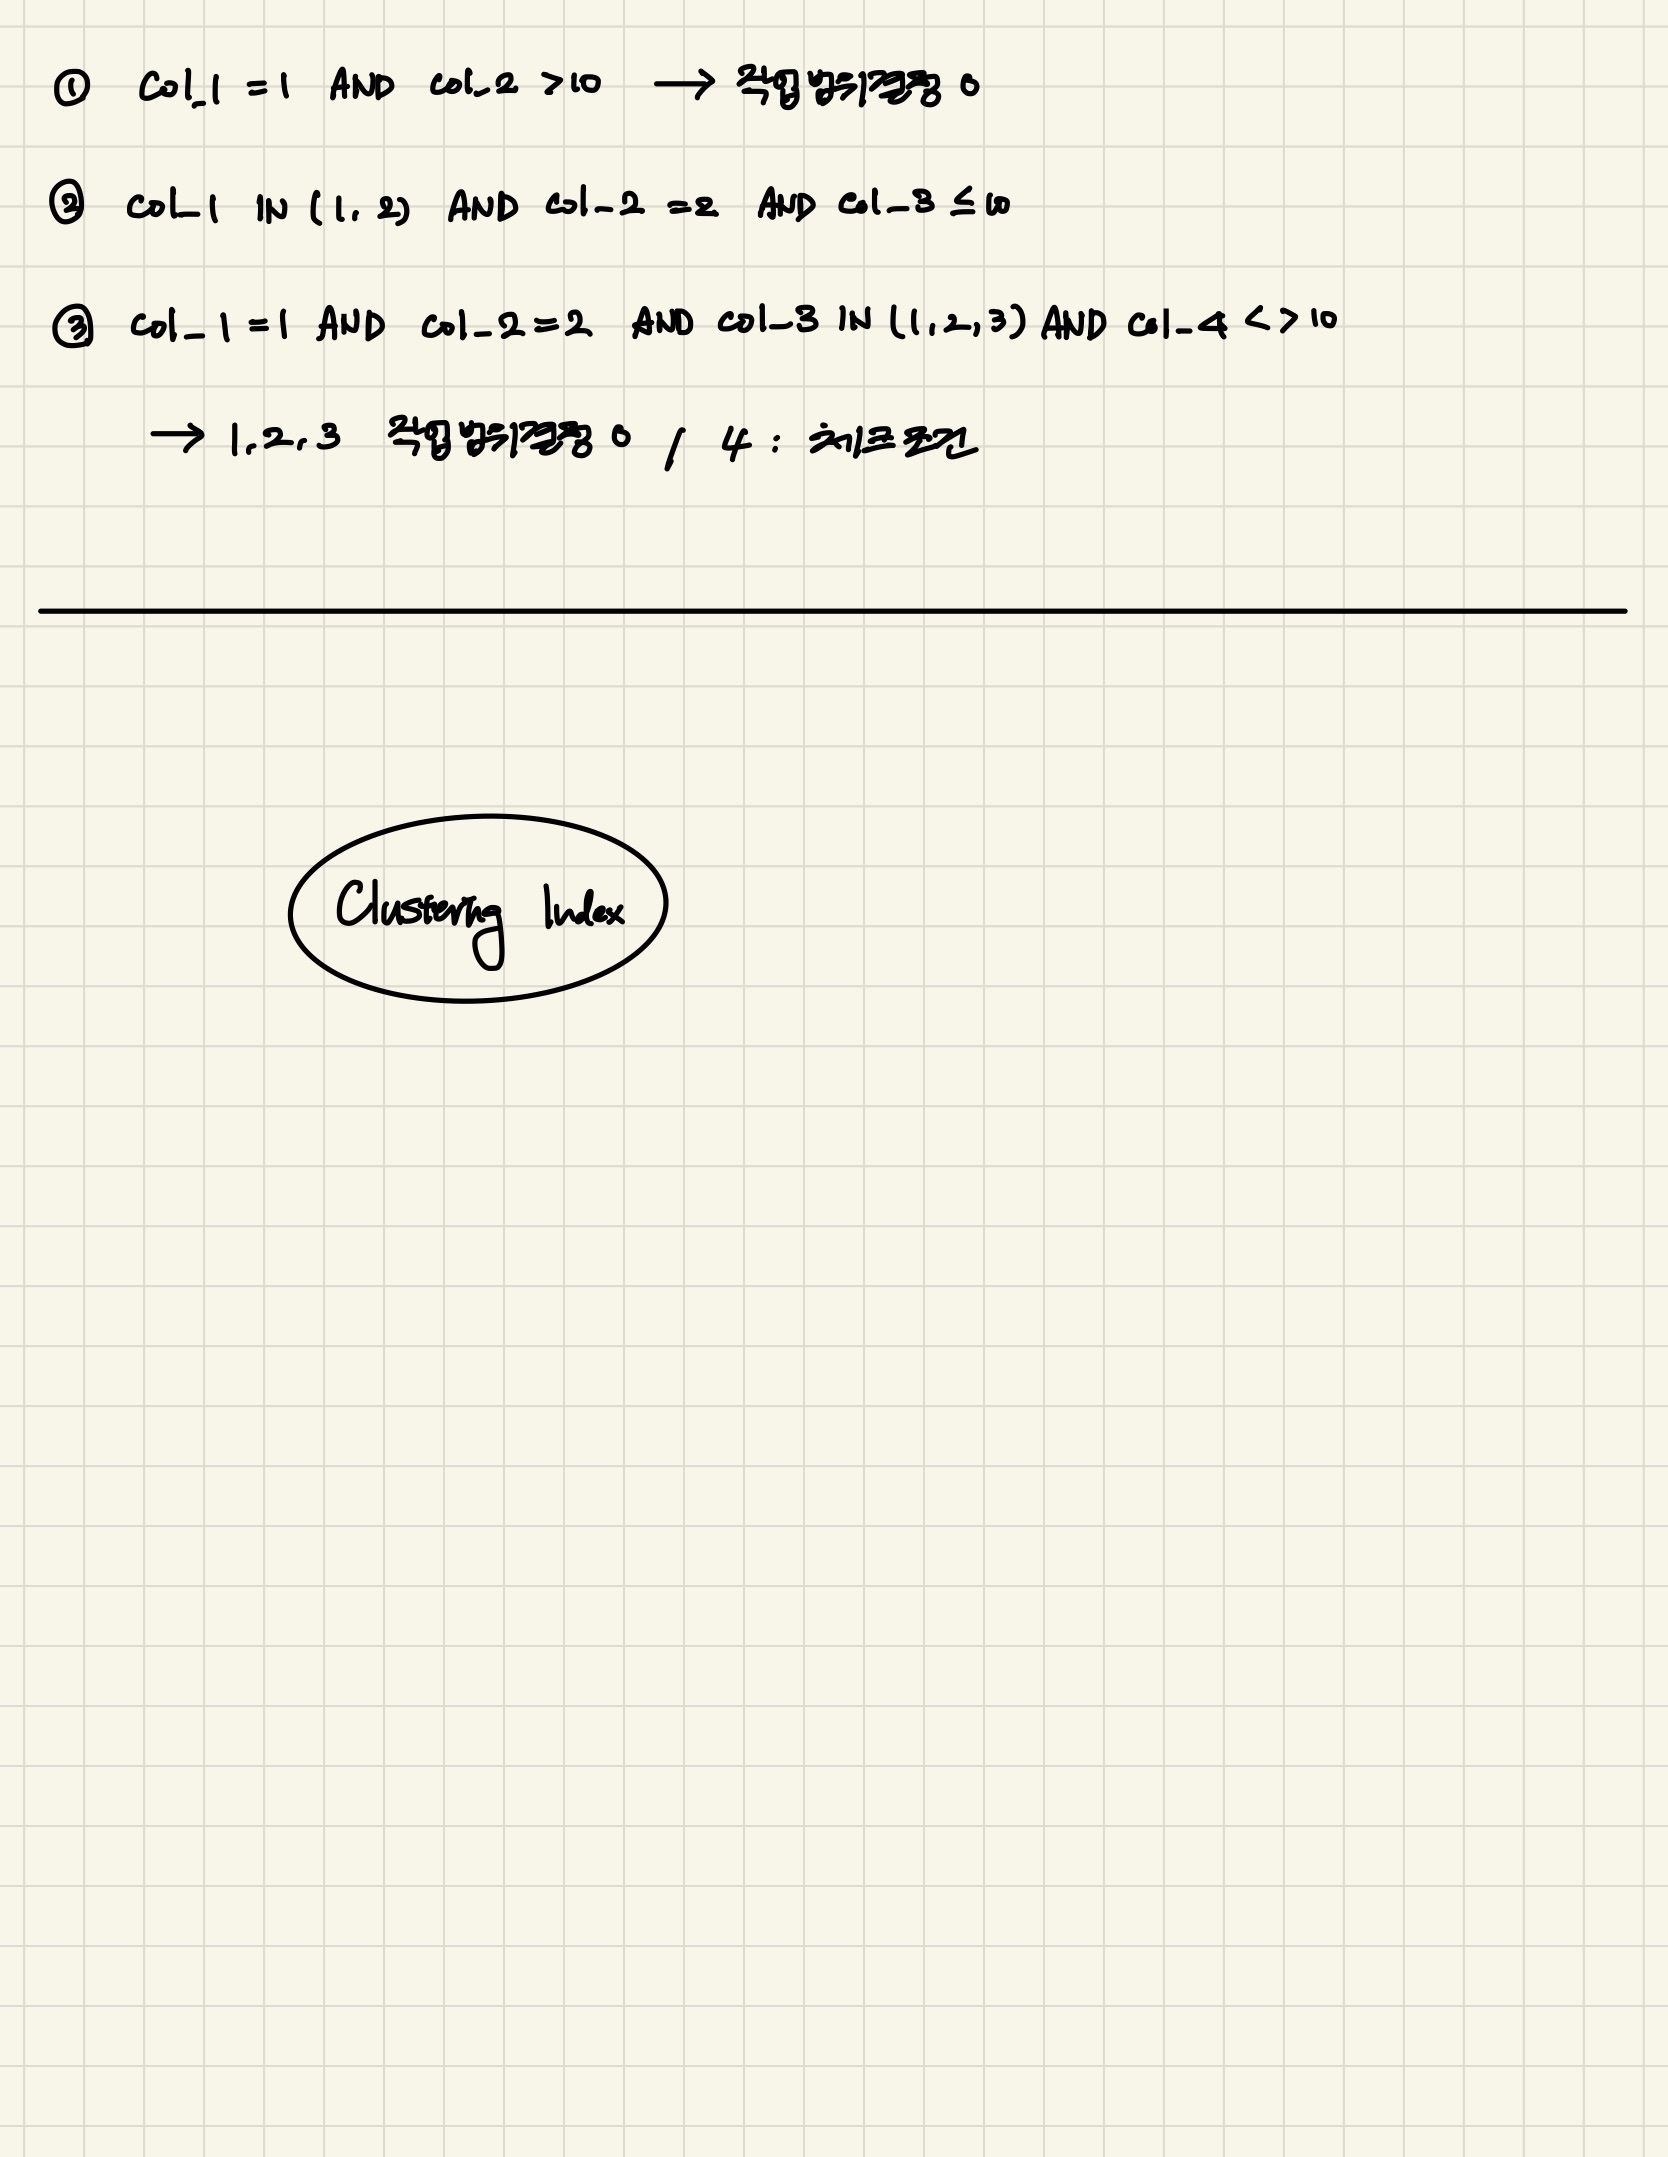 ① Col_1 = 1 AND col_2 > 10 → 작업범위결정 O
② col_1 IN (1, 2) AND col_2 = 2 AND col_3 ≤ 10
③ col_1 = 1 AND col_2 = 2 AND col_3 IN (1, 2, 3) AND col_4 <> 10
→ 1, 2, 3 작업범위결정 O / 4 : 체크조건
Clustering Index